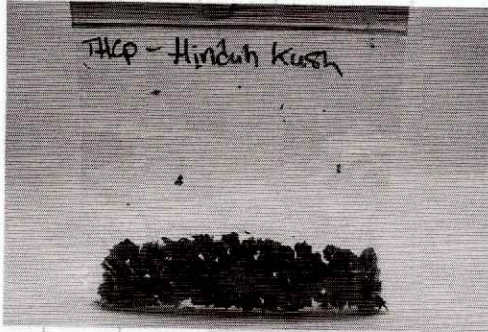 THCP - Hinduh Kush